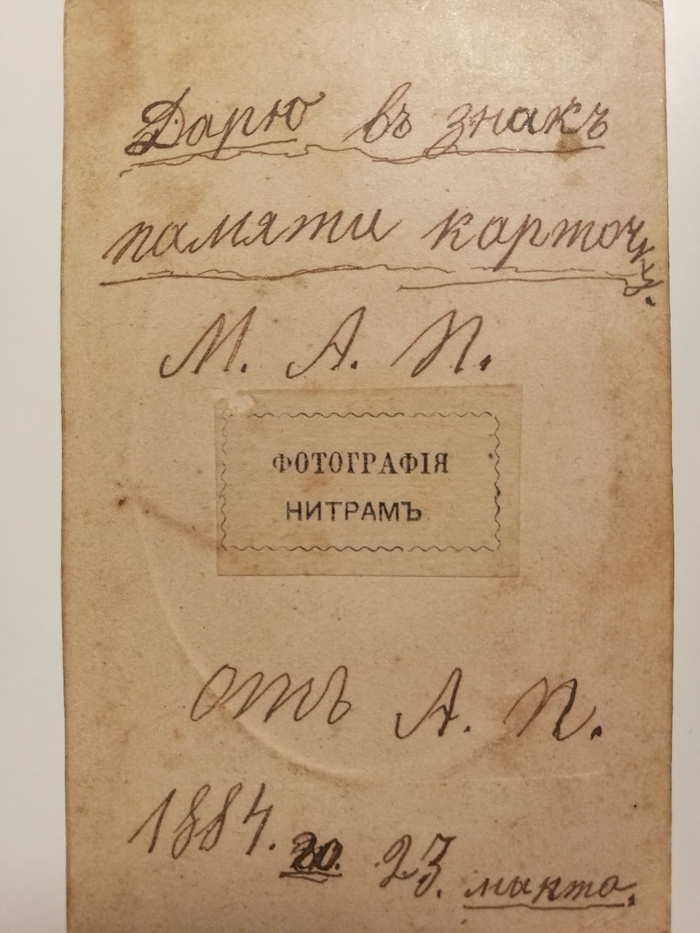 Дарю въ знакъ
памяти карточку.
М. А. П.
ФОТОГРАФІЯ
НИТРАМЪ
отъ А. П.
1884. го. 23. марта.